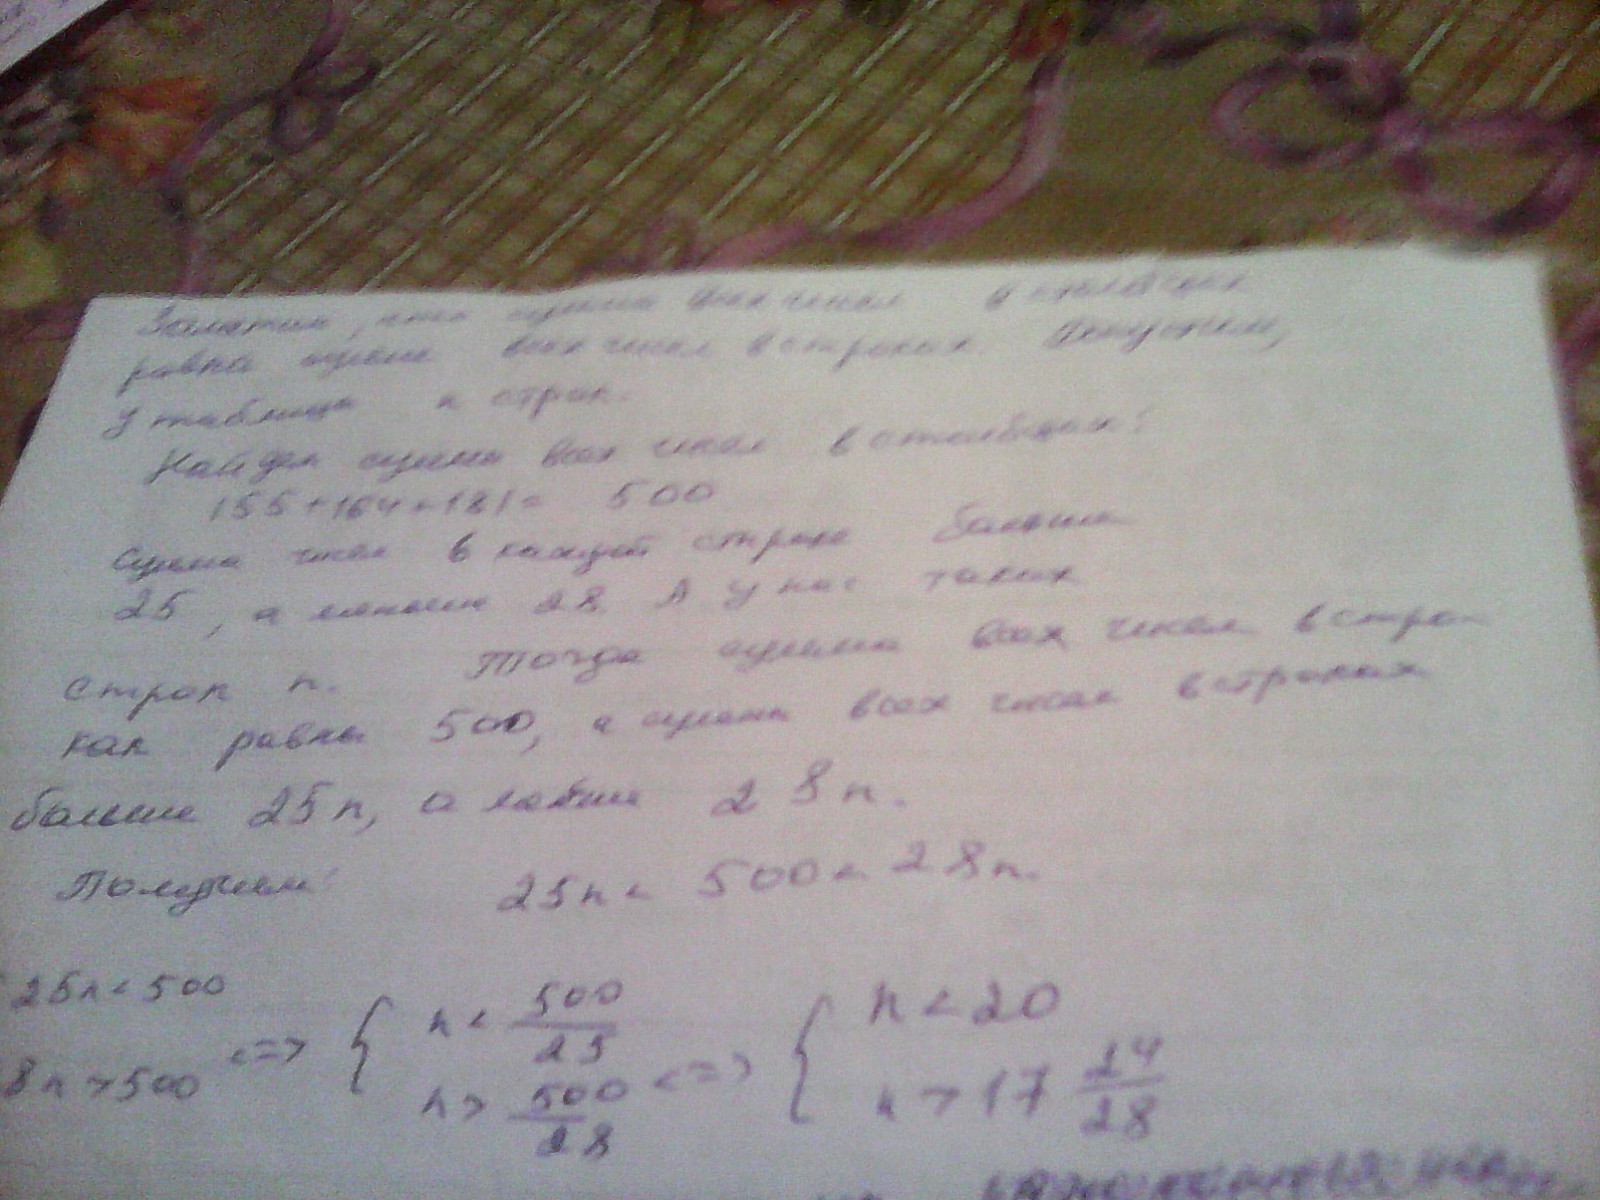 Заметим, что сумма всех чисел в столбцах
равна сумме всех чисел в строках. Допустим,
у таблицы n строк.
Найдем сумму всех чисел в столбцах:
155+164+181= 500
Сумма чисел в каждой строке больше
25, а меньше 28. А у нас таких
строк n. Тогда сумма всех чисел в стро-
ках равны 500, а сумма всех чисел в строках
больше 25n, а 28n.
Получаем: 25n < 500 < 28n.
25n < 500 <=> { n < 500/25 <=> { n < 20
8n > 500 n > 500/28 n > 17 24/28